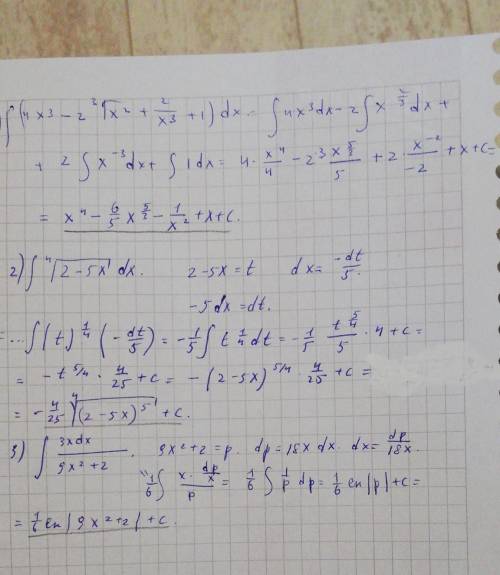 ∫(4x³ - 2 ³√x² + 2/x³ + 1) dx = ∫4x³dx - 2∫x^(2/3) dx +
+ 2∫x⁻³dx + ∫1dx = 4·x⁴/4 - 2 3x^(5/2)/5 + 2·x⁻²/-2 + x + c =
= x⁴ - 6/5 x^(5/2) - 1/x² + x + c.
2) ∫⁴√(2-5x) dx. 2-5x = t dx = -dt/5.
-5dx = dt.
= ...∫(t)^(1/4) (-dt/5) = -1/5 ∫t^(1/4) dt = -1/5 t^(5/4)/5 · 4 + c =
= -t^(5/4) · 4/25 + c = -(2-5x)^(5/4) · 4/25 + c =
= -4/25 ⁴√(2-5x)⁵ + c.
3) ∫ 3xdx/(9x²+2). 9x²+2 = p. dp = 18x dx. dx = dp/18x.
"1/6 ∫ (x · dp/x)/p = 1/6 ∫ 1/p dp = 1/6 ln|p| + c =
= 1/6 ln|9x²+2| + c.